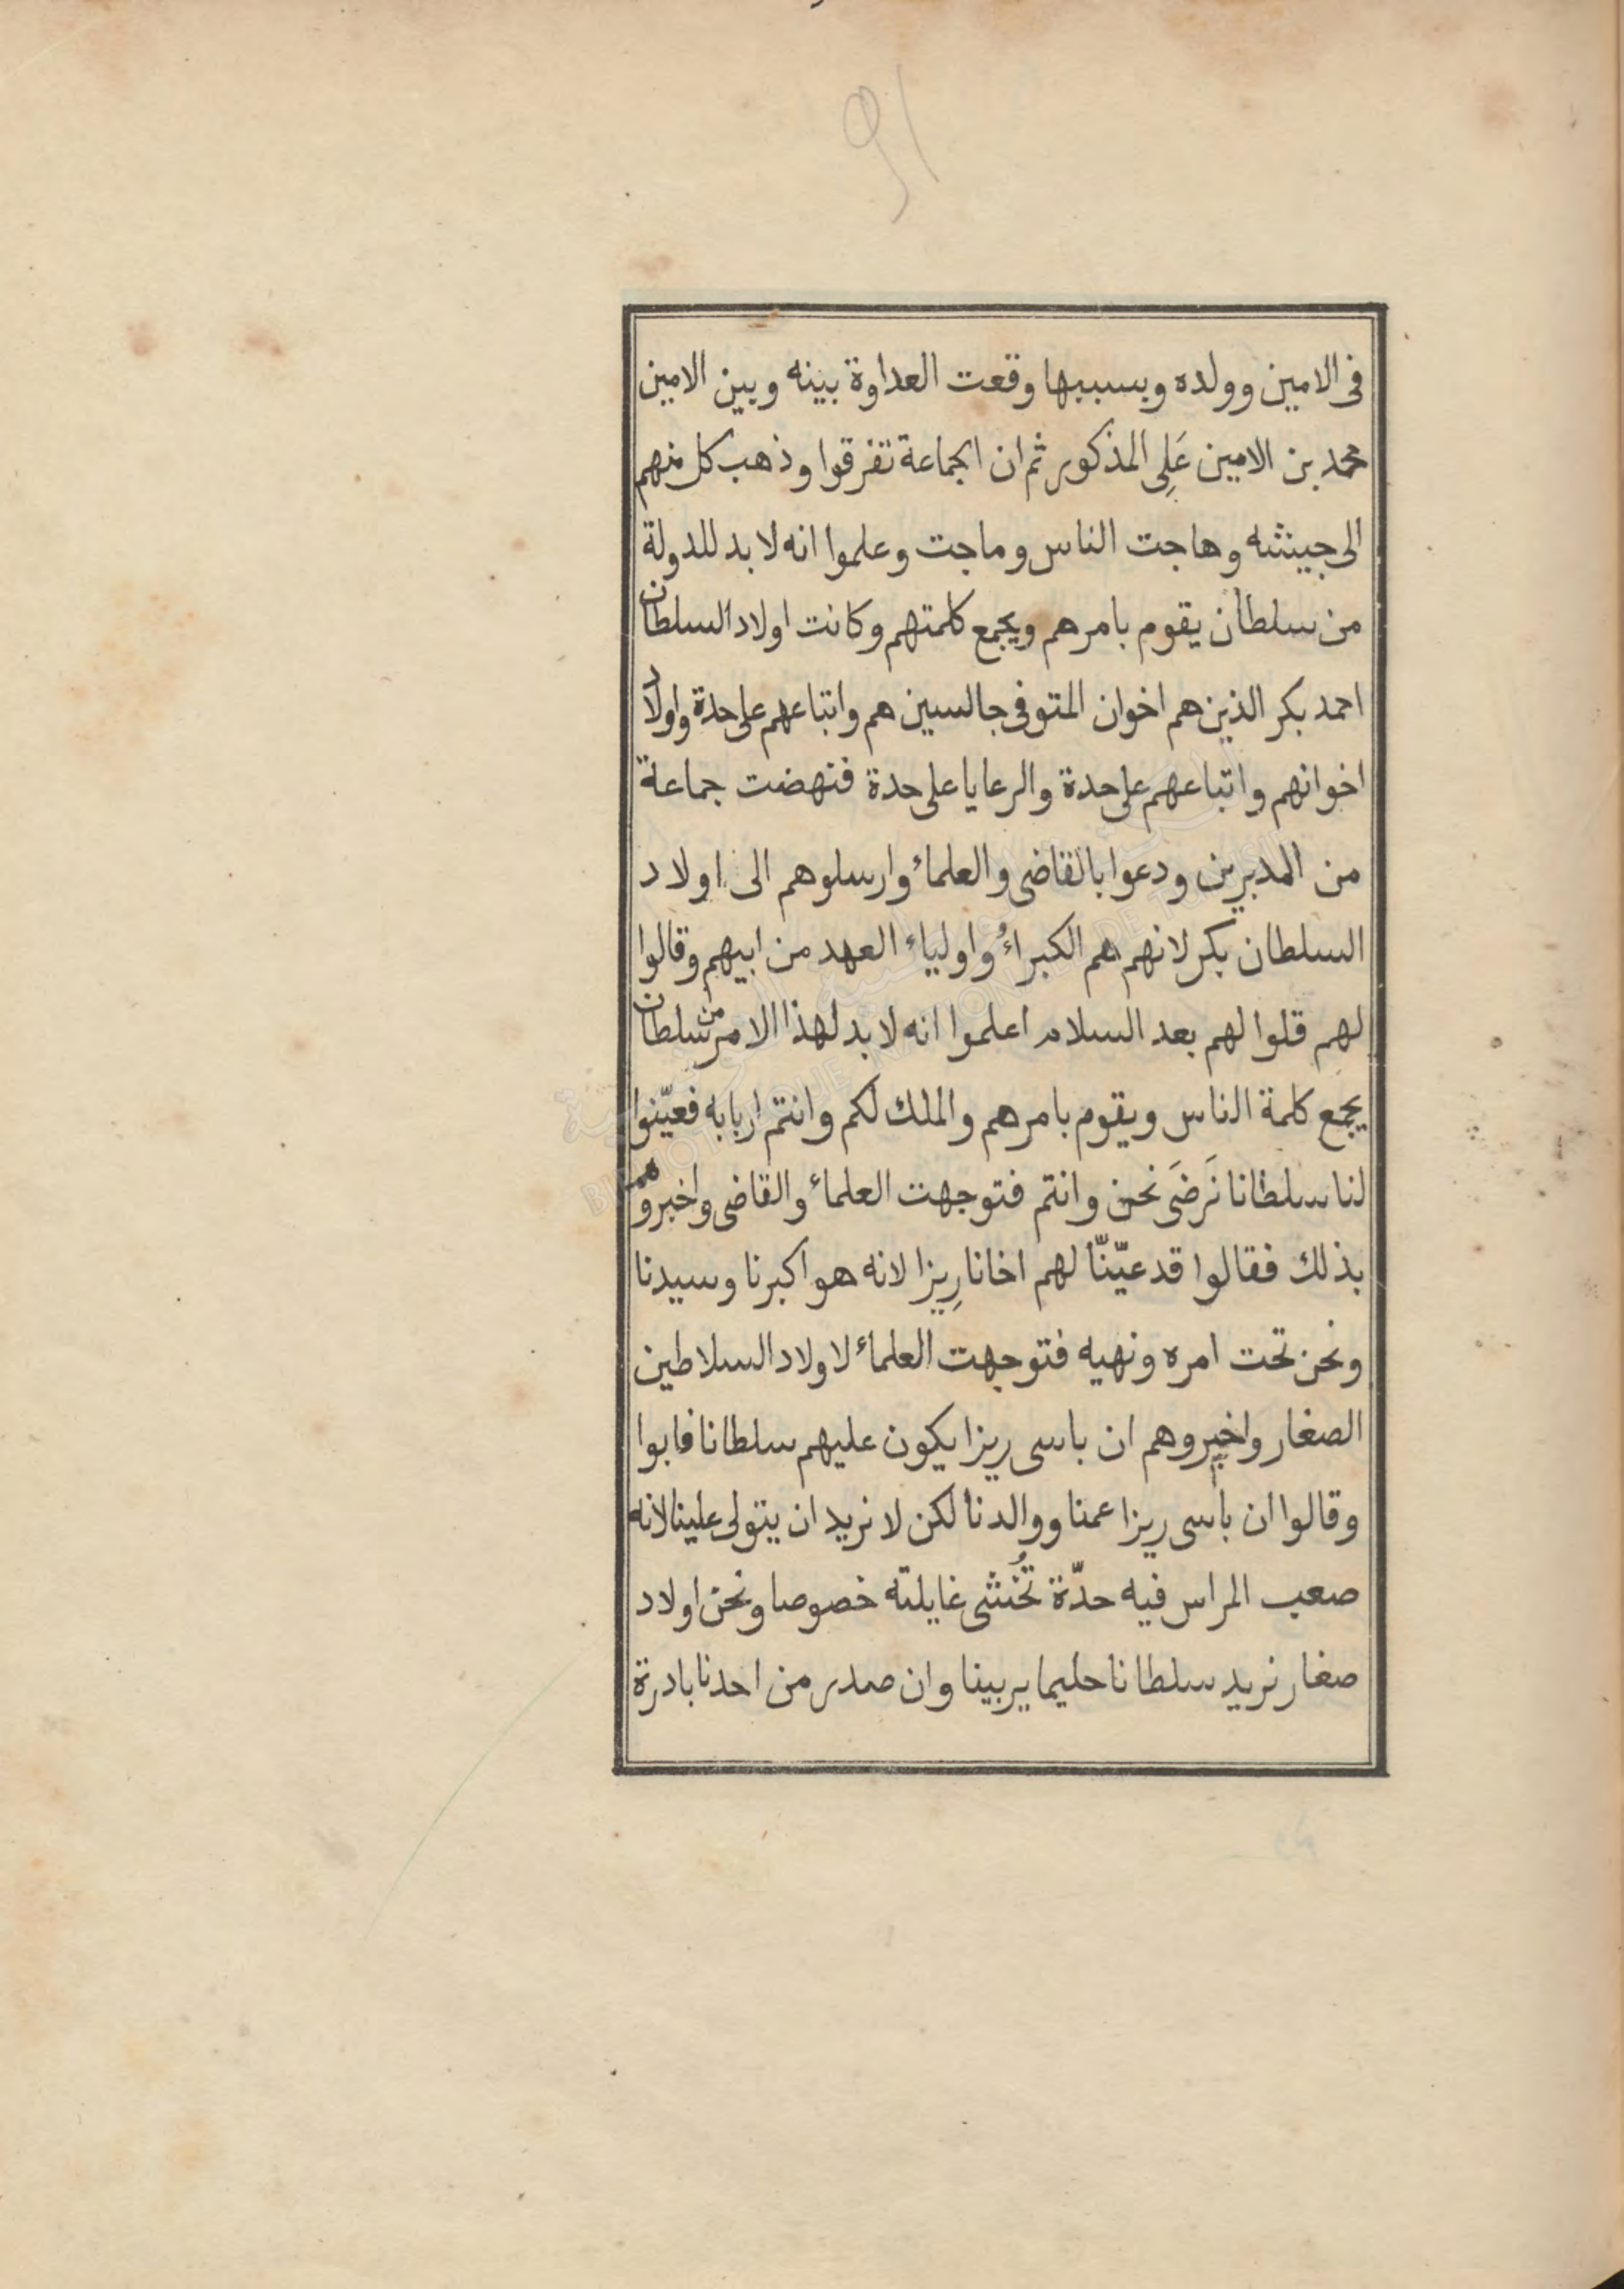 91
فى الامين وولده وبسببها وقعت العداوة بينه وبين الامين
محمد بن الامين عَلِى المذكور ثم ان الجماعة تفرقوا وذهب كل منهم
الى جيشه وهاجت الناس وماجت وعلموا انه لا بد للدولة
من سلطان يقوم بامرهم ويجمع كلمتهم وكانت اولاد السلطان
احمد بكر الذين هم اخوان المتوفى جالسين هم واتباعهم على حدة واولاد
اخوانهم واتباعهم على حدة والرعايا على حدة فنهضت جماعة
من المدبرين ودعوا بالقاضى والعلماء وارسلوهم الى اولاد
السلطان بكر لانهم هم الكبراءُ واولياء العهد من ابيهم وقالوا
لهم قلوا لهم بعد السلام اعلموا انه لا بد لهذا الامر من سلطان
يجمع كلمة الناس ويقوم بامرهم والملك لكم وانتم اربابه فعيّنوا
لنا سلطانا نَرضَى نحن وانتم فتوجهت العلماء والقاضى واخبروهم
بذلك فقالوا قد عيّنّا لهم اخانا رِيزا لانه هو اكبرنا وسيدنا
ونحن تحت امره ونهيه فتوجهت العلماء لاولاد السلاطين
الصغار واخبروهم ان باسى ريزا يكون عليهم سلطانا فابوا
وقالوا ان باسى ريزا عمنا ووالدنا لكن لا نريد ان يتولى علينا لانه
صعب المراس فيه حدّة تُخشى غايلته خصوصا ونحن اولاد
صغار نريد سلطانا حليما يربينا وان صدر من احدنا بادرة